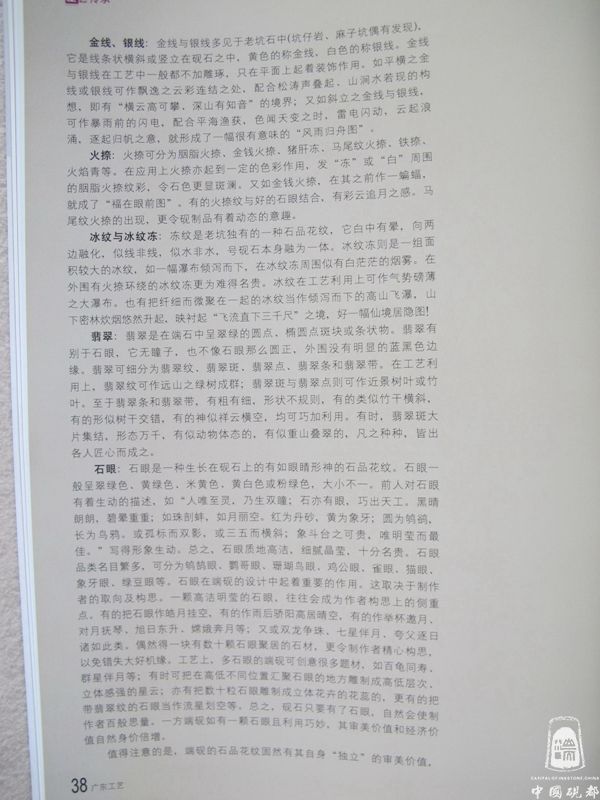 金线、银线：金线与银线多见于老坑石中(坑仔岩、麻子坑偶有发现)，
它是线条状横斜或竖立在砚石之中，黄色的称金线，白色的称银线。金线
与银线在工艺中一般都不加雕琢，只在平面上起着装饰作用。如平横之金
线或银线可作飘逸之云彩连结之处，配合松涛声叠起、山涧水若现的构
想，即有“横云高可攀，深山有知音”的境界；又如斜立之金线与银线，
可作暴雨前的闪电，配合平海渔获，色闻天变之时，雷电闪动，云起浪
涌，逐起归帆之意，就形成了一幅很有意味的“风雨归舟图”。
火捺：火捺可分为胭脂火捺、金钱火捺、猪肝冻、马尾纹火捺、铁捺、
火焰青等。在应用上火捺亦起到一定的色彩作用，发“冻”或“白”周围
的胭脂火捺纹彩，令石色更显斑斓。又如金钱火捺，在其之前作一蝙蝠，
就成了“福在眼前图”。有的火捺纹与好的石眼结合，有彩云追月之感。马
尾纹火捺的出现，更令砚制品有着动态的意趣。
冰纹与冰纹冻：冻纹是老坑独有的一种石品花纹，它白中有晕，向两
边融化，似线非线，似水非水，号砚石本身融为一体。冰纹冻则是一组面
积较大的冰纹，如一幅瀑布倾泻而下，在冰纹冻周围似有白茫茫的烟雾。在
外围有火捺环绕的冰纹冻更为难得名贵。冰纹在工艺利用上可作气势磅薄
之大瀑布。也有把纤细而微聚在一起的冰纹当作倾泻而下的高山飞瀑，山
下密林炊烟悠然升起，映衬起“飞流直下三千尺”之境，好一幅仙境居隐图！
翡翠：翡翠是在端石中呈翠绿的圆点、椭圆点斑块或条状物。翡翠有
别于石眼，它无瞳子，也不像石眼那么圆正，外围没有明显的蓝黑色边
缘。翡翠可细分为翡翠纹、翡翠斑、翡翠点、翡翠条和翡翠带。在工艺利
用上，翡翠纹可作远山之绿树成群；翡翠斑与翡翠点则可作近景树叶或竹
叶。至于翡翠条和翡翠带，有粗有细，形状不规则，有的类似竹干横斜，
有的形似树干交错，有的神似祥云横空，均可巧加利用。有时，翡翠斑大
片集结，形态万千，有似动物体态的，有似重山叠翠的，凡之种种，皆出
各人匠心而成之。
石眼：石眼是一种生长在砚石上的有如眼睛形神的石品花纹。石眼一
般呈翠绿色、黄绿色、米黄色、黄白色或粉绿色，大小不一。前人对石眼
有着生动的描述，如“人唯至灵，乃生双瞳；石亦有眼，巧出天工。黑睛
朗朗，碧晕重重；如珠剖蚌，如月丽空。红为丹砂，黄为象牙；圆为鸲鹆，
长为鸟鸦。或孤标而双影，或三五而横斜；象斗台之可贵，唯明莹而最
佳。”写得形象生动。总之，石眼质地高洁，细腻晶莹，十分名贵。石眼
品类名目繁多，可分为鸲鹆眼、鹦哥眼、珊瑚鸟眼、鸡公眼、雀眼、猫眼、
象牙眼、绿豆眼等。石眼在端砚的设计中起着重要的作用。这取决于制作
者的取向及构思。一颗高洁明莹的石眼，往往会成为作者构思上的侧重
点。有的把石眼作皓月挂空，有的作雨后骄阳高居晴空，有的作举杯邀月、
对月抚琴，旭日东升、嫦娥奔月等；又或双龙争珠、七星伴月、夸父逐日
诸如此类。偶然得一块有数十颗石眼聚居的石材，更令制作者精心构思，
以免错失大好机缘。工艺上，多石眼的端砚可创意很多题材，如百龟同寿、
群星伴月等；有时可把在高低不同位置汇聚石眼的地方雕制成高低层次、
立体感强的星云；亦有把数十粒石眼雕制成立体花卉的花蕊的，更有的把
带翡翠纹的石眼当作流星划空等。总之，砚石只要有了石眼，自然会使制
作者百般思量。一方端砚如有一颗石眼且利用巧妙，其审美价值和经济价
值自然身价倍增。
值得注意的是，端砚的石品花纹固然有其自身“独立”的审美价值，
38 广东工艺
CAPITAL OF INKSTONE, CHINA
中国砚都